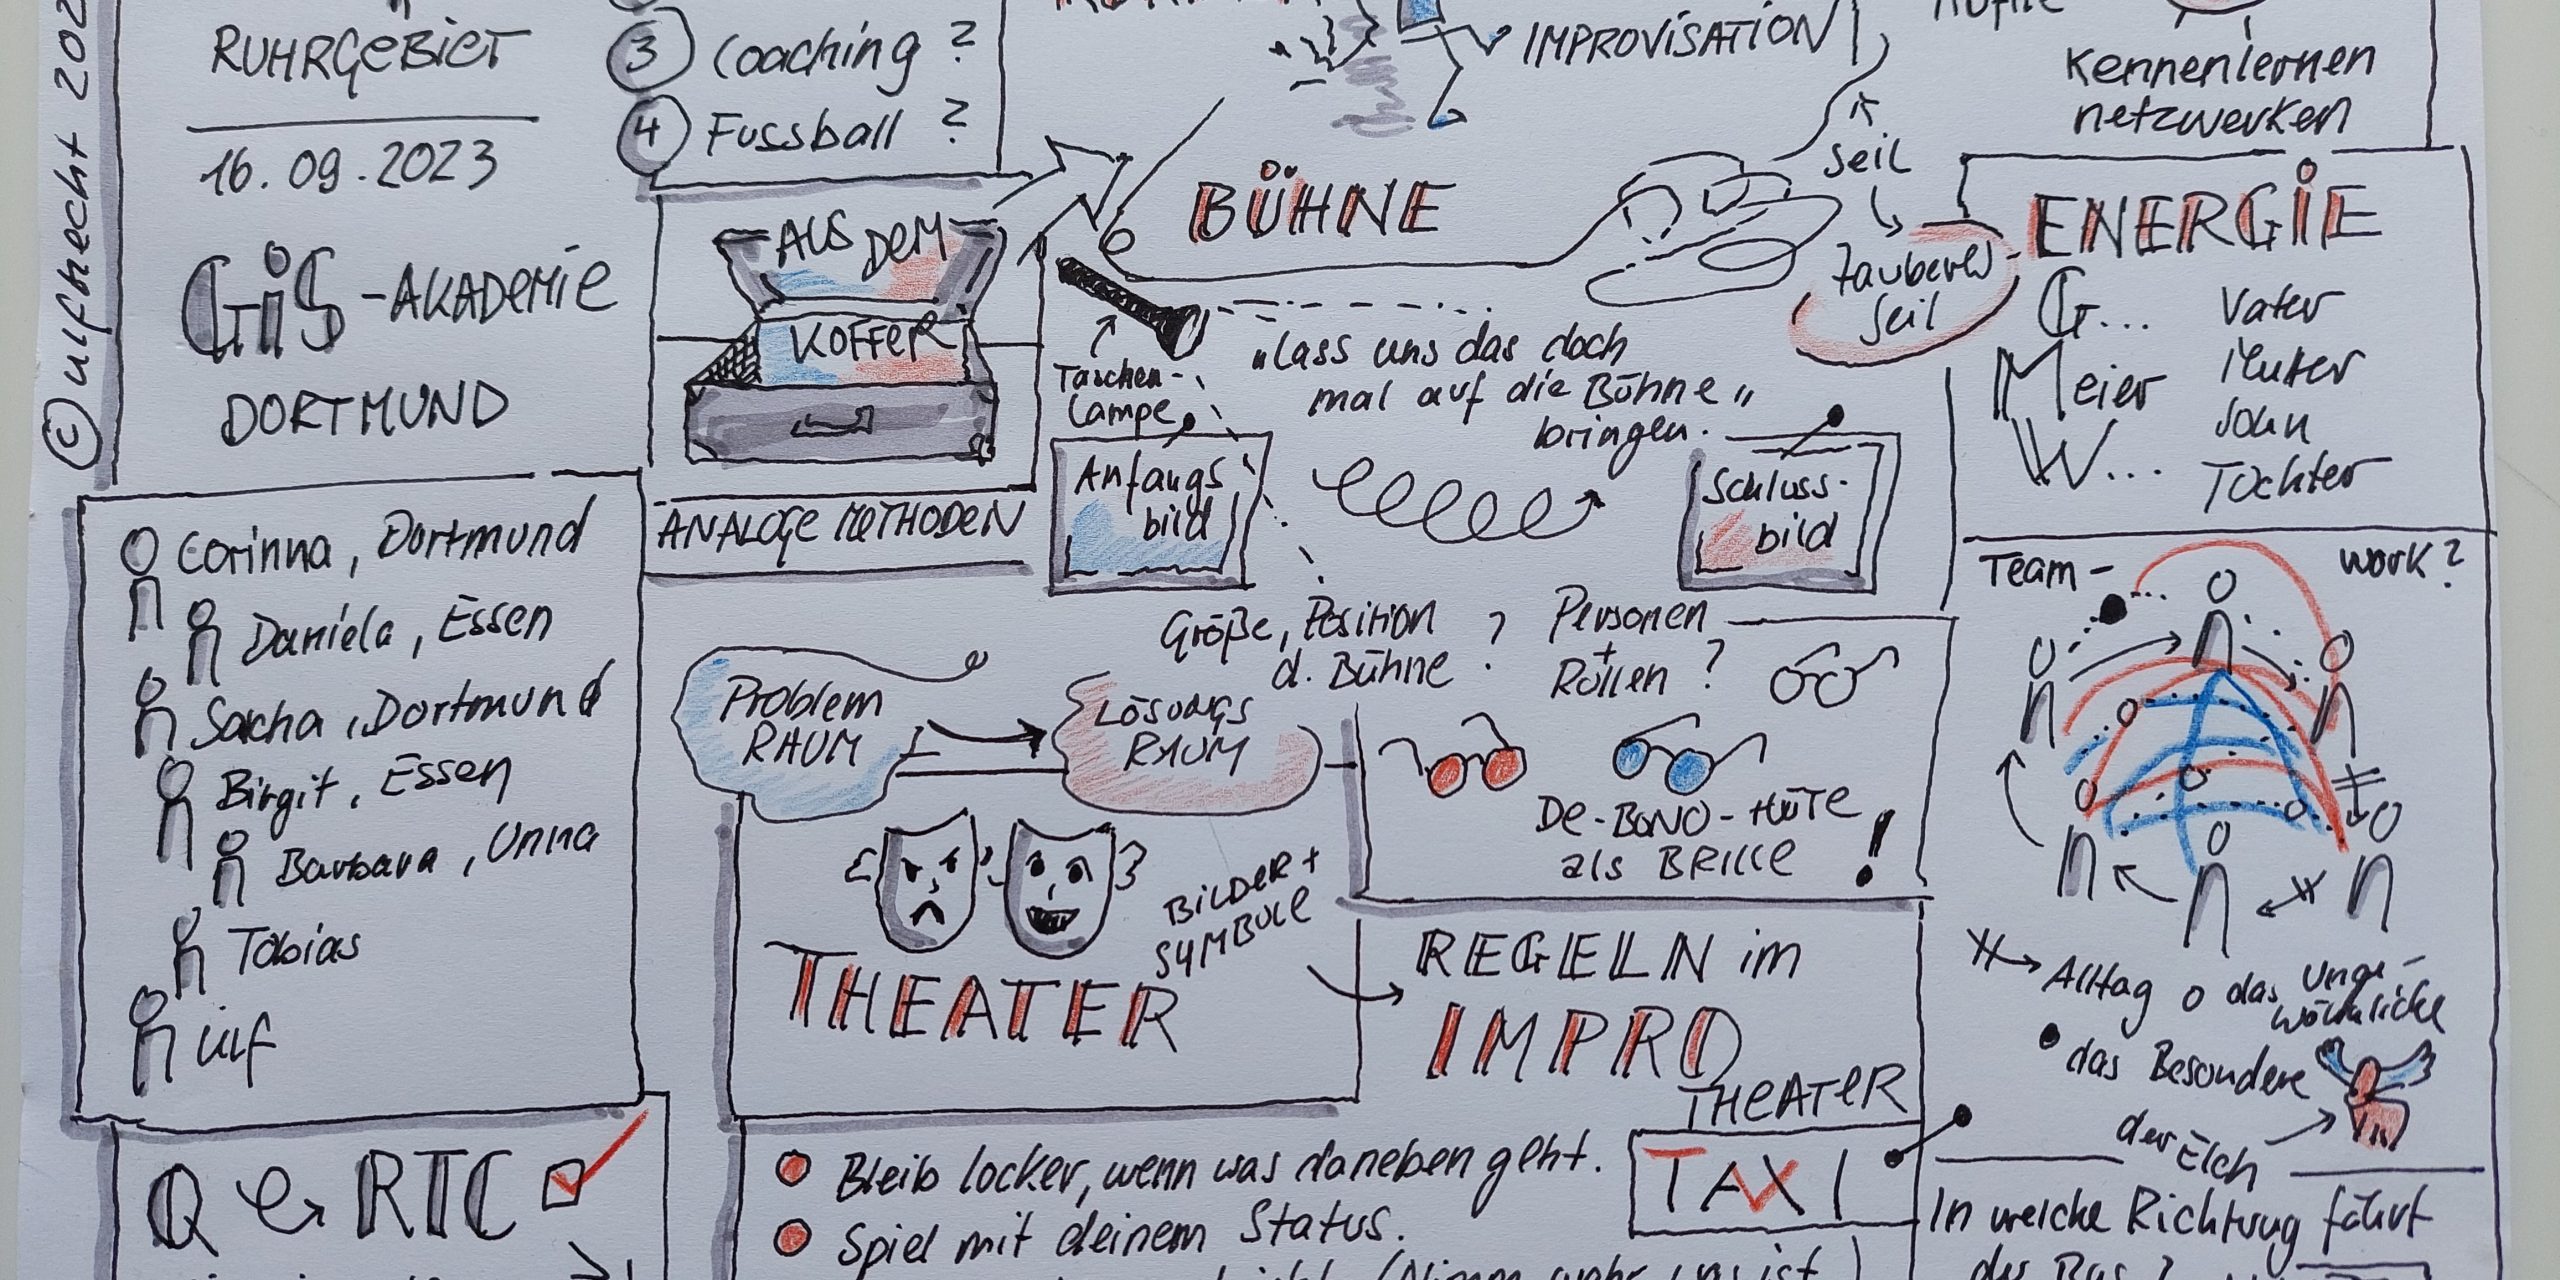 © ulfhecht
RUHRGEBIET
16.09.2023
GiS-AKADEMIE
DORTMUND
3 Coaching?
4 Fussball?
IMPROVISATION
Kennenlernen
netzwerken
AUS DEM
KOFFER
ANALOGE METHODEN
BÜHNE
Seil
Zauber
seil
Taschen-
Lampe
„Lass uns das doch
mal auf die Bühne"
bringen.
Anfangs
bild
Schluss-
bild
Größe, Position
d. Bühne?
Personen
+
Rollen?
ENERGiE
G... Vater
Meier Mutter
W... Sohn
Tochter
Corinna, Dortmund
Daniela, Essen
Sascha, Dortmund
Birgit, Essen
Barbara, Unna
Tobias
Ulf
Problem
RAUM
LÖSUNGS
RAUM
DE-BONO-HÜTE
als BRILLE !
THEATER
BILDER +
SYMBOLE
REGELN im
IMPRO
THEATER
Team- work?
Alltag o das Unge-
wöhnliche
das Besondere
der Elch
Q RTC
Bleib locker, wenn was daneben geht.
Spiel mit deinem Status.
TAXI
In welche Richtung fährt
der Bus?